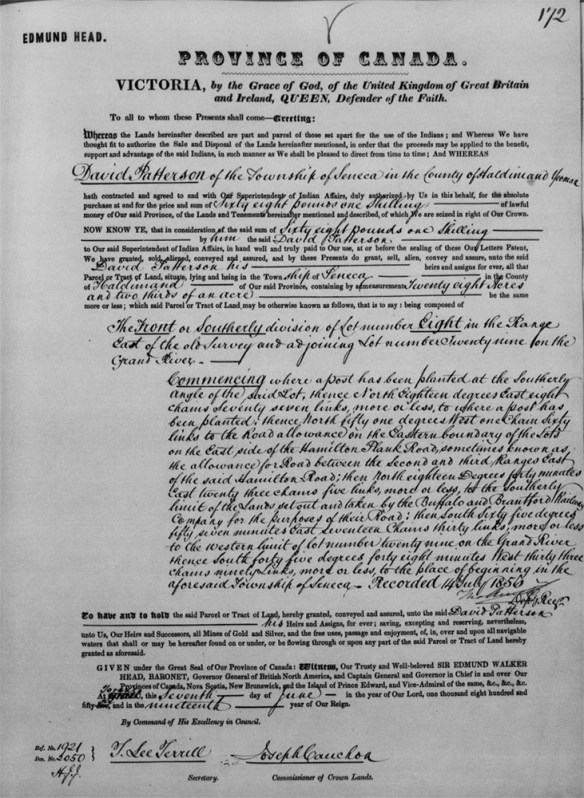 172
EDMUND HEAD.
PROVINCE OF CANADA.
VICTORIA, by the Grace of God, of the United Kingdom of Great Britain
and Ireland, QUEEN, Defender of the Faith.
To all to whom these Presents shall come—Greeting:
Whereas the Lands hereinafter described are part and parcel of those set apart for the use of the Indians; and Whereas We have
thought fit to authorize the Sale and Disposal of the Lands hereinafter mentioned, in order that the proceeds may be applied to the benefit,
support and advantage of the said Indians, in such manner as We shall be pleased to direct from time to time; And WHEREAS
David Patterson of the Township of Seneca in the County of Haldimand Yeoman
hath contracted and agreed to and with Our Superintendent of Indian Affairs, duly authorized by Us in this behalf, for the absolute
purchase at and for the price and sum of Sixty eight pounds one Shilling of lawful
money of Our said Province, of the Lands and Tenements hereinafter mentioned and described, of which We are seized in right of Our Crown.
NOW KNOW YE, that in consideration of the said sum of Sixty eight pounds one Shilling
by him the said David Patterson
to Our said Superintendent of Indian Affairs, in hand well and truly paid to Our use, at or before the sealing of these Our Letters Patent,
We have granted, sold, aliened, conveyed and assured, and by these Presents do grant, sell, alien, convey and assure, unto the said
David Patterson his heirs and assigns for ever, all that
Parcel or Tract of Land, situate, lying and being in the Township of Seneca in the County
of Haldimand of Our said Province, containing by admeasurement Twenty eight Acres
and two thirds of an acre be the same
more or less; which said Parcel or Tract of Land, may be otherwise known as follows, that is to say: being composed of
The Front or Southerly division of Lot number Eight in the Range
East of the old Survey and adjoining Lot number Twenty nine on the
Grand River.
Commencing where a post has been planted at the Southerly
Angle of the said Lot, thence North Eighteen degrees East eight
chains Seventy seven links, more or less, to where a post has
been planted; thence North fifty one degrees West one Chain Sixty
links to the Road allowance on the Eastern boundary of the Lots
on the East side of the Hamilton Plank Road, sometimes known as
the allowance for Road between the Second and third Ranges East
of the said Hamilton Road; then North eighteen Degrees forty minutes
East twenty three chains five links, more or less, to the Southerly
limit of the Lands set out and taken by the Buffalo and Brantford Railway
Company for the purposes of their Road; then South Sixty five degrees
fifty seven minutes East Seventeen Chains thirty links, more or less
to the western limit of lot number twenty nine on the Grand River
thence South forty five degrees forty eight minutes West thirty three
chains ninety links, more or less, to the place of beginning in the
aforesaid Township of Seneca. Recorded 14 July 1856
To have and to hold the said Parcel or Tract of Land, hereby granted, conveyed and assured, unto the said David Patterson
his Heirs and Assigns, for ever; saving, excepting and reserving, nevertheless,
unto Us, Our Heirs and Successors, all Mines of Gold and Silver, and the free uses, passage and enjoyment, of, in, over and upon all navigable
waters that shall or may be hereafter found on or under, or be flowing through or upon any part of the said Parcel or Tract of Land hereby
granted as aforesaid.
GIVEN under the Great Seal of Our Province of Canada: Witness, Our Trusty and Well-beloved SIR EDMUND WALKER
HEAD, BARONET, Governor General of British North America, and Captain General and Governor in Chief in and over Our
Provinces of Canada, Nova Scotia, New Brunswick, and the Island of Prince Edward, and Vice-Admiral of the same, &c., &c., &c.
At Toronto, this Seventh day of June in the year of Our Lord, one thousand eight hundred and
fifty- and in the nineteenth year of Our Reign.
By Command of His Excellency in Council.
Ref. No. 1921
Des. No. 2050
T. Lee Terrill
Joseph Cauchon
Secretary.
Commissioner of Crown Lands.